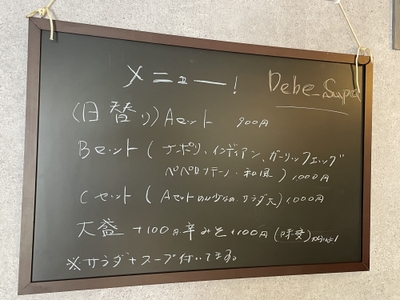 メニュー! Debe_Supa
(日替り) Aセット 900円
Bセット (ナポリ、インディアン、ガーリックエッグ
ペペロンチーノ・和風) 1,000円
Cセット (Aセットのめん少なめ、サラダ大) 1,000円
大盛 +100円 辛みそ+100円 (味変)
※サラダ+スープ付いてます。